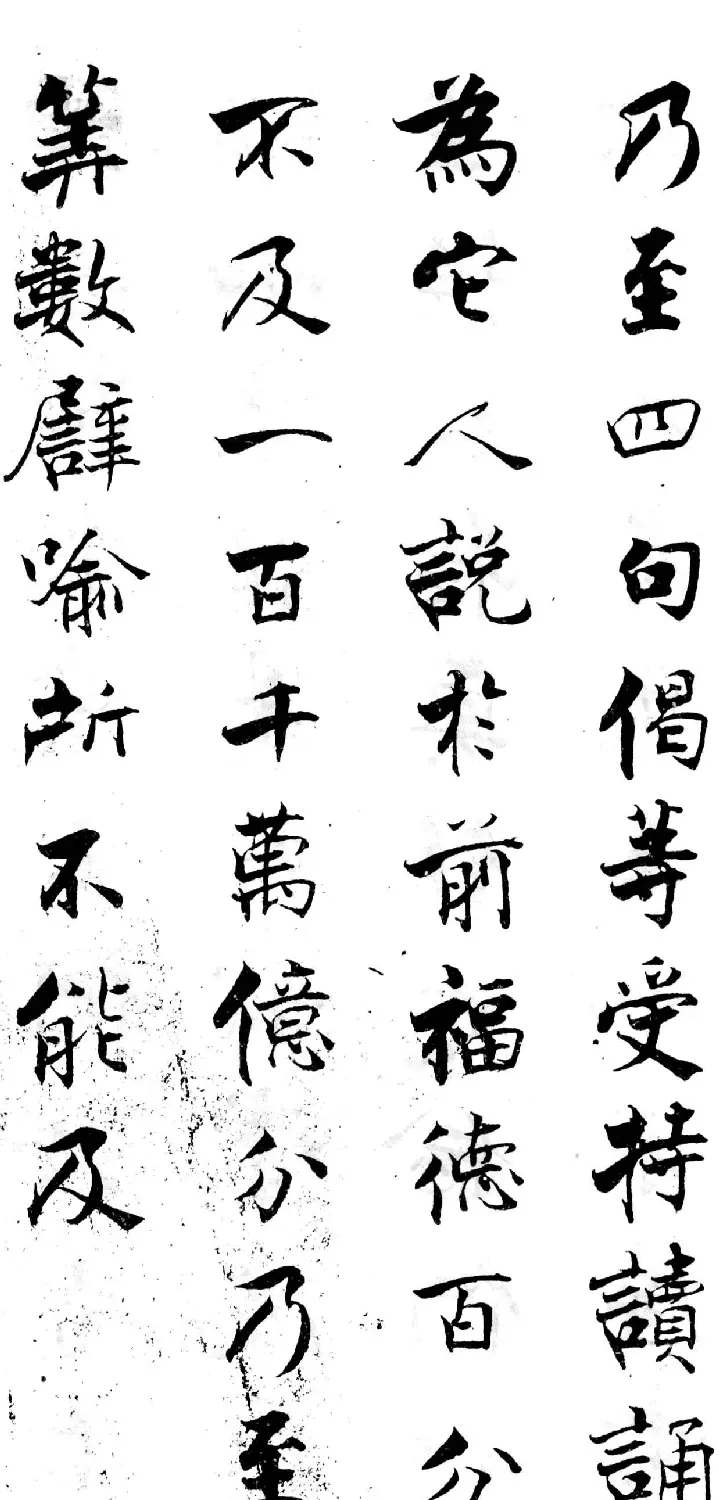 乃至四句偈等受持讀誦
為它人説於前福德百分
不及一百千萬億分乃至
筭數譬喻所不能及